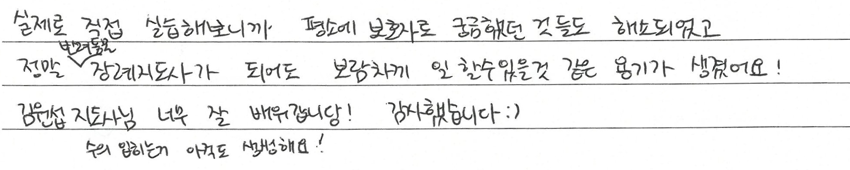 실제로 직접 실습해보니까 평소에 보호자로 궁금했던 것들도 해소되었고
정말 반려동물 장례지도사가 되어도 보람차게 일 할수있을것 같은 용기가 생겼어요!
김원섭 지도사님 너무 잘 배워갑니당! 감사했습니다:)
수의 입히는거 아직도 생생해요!